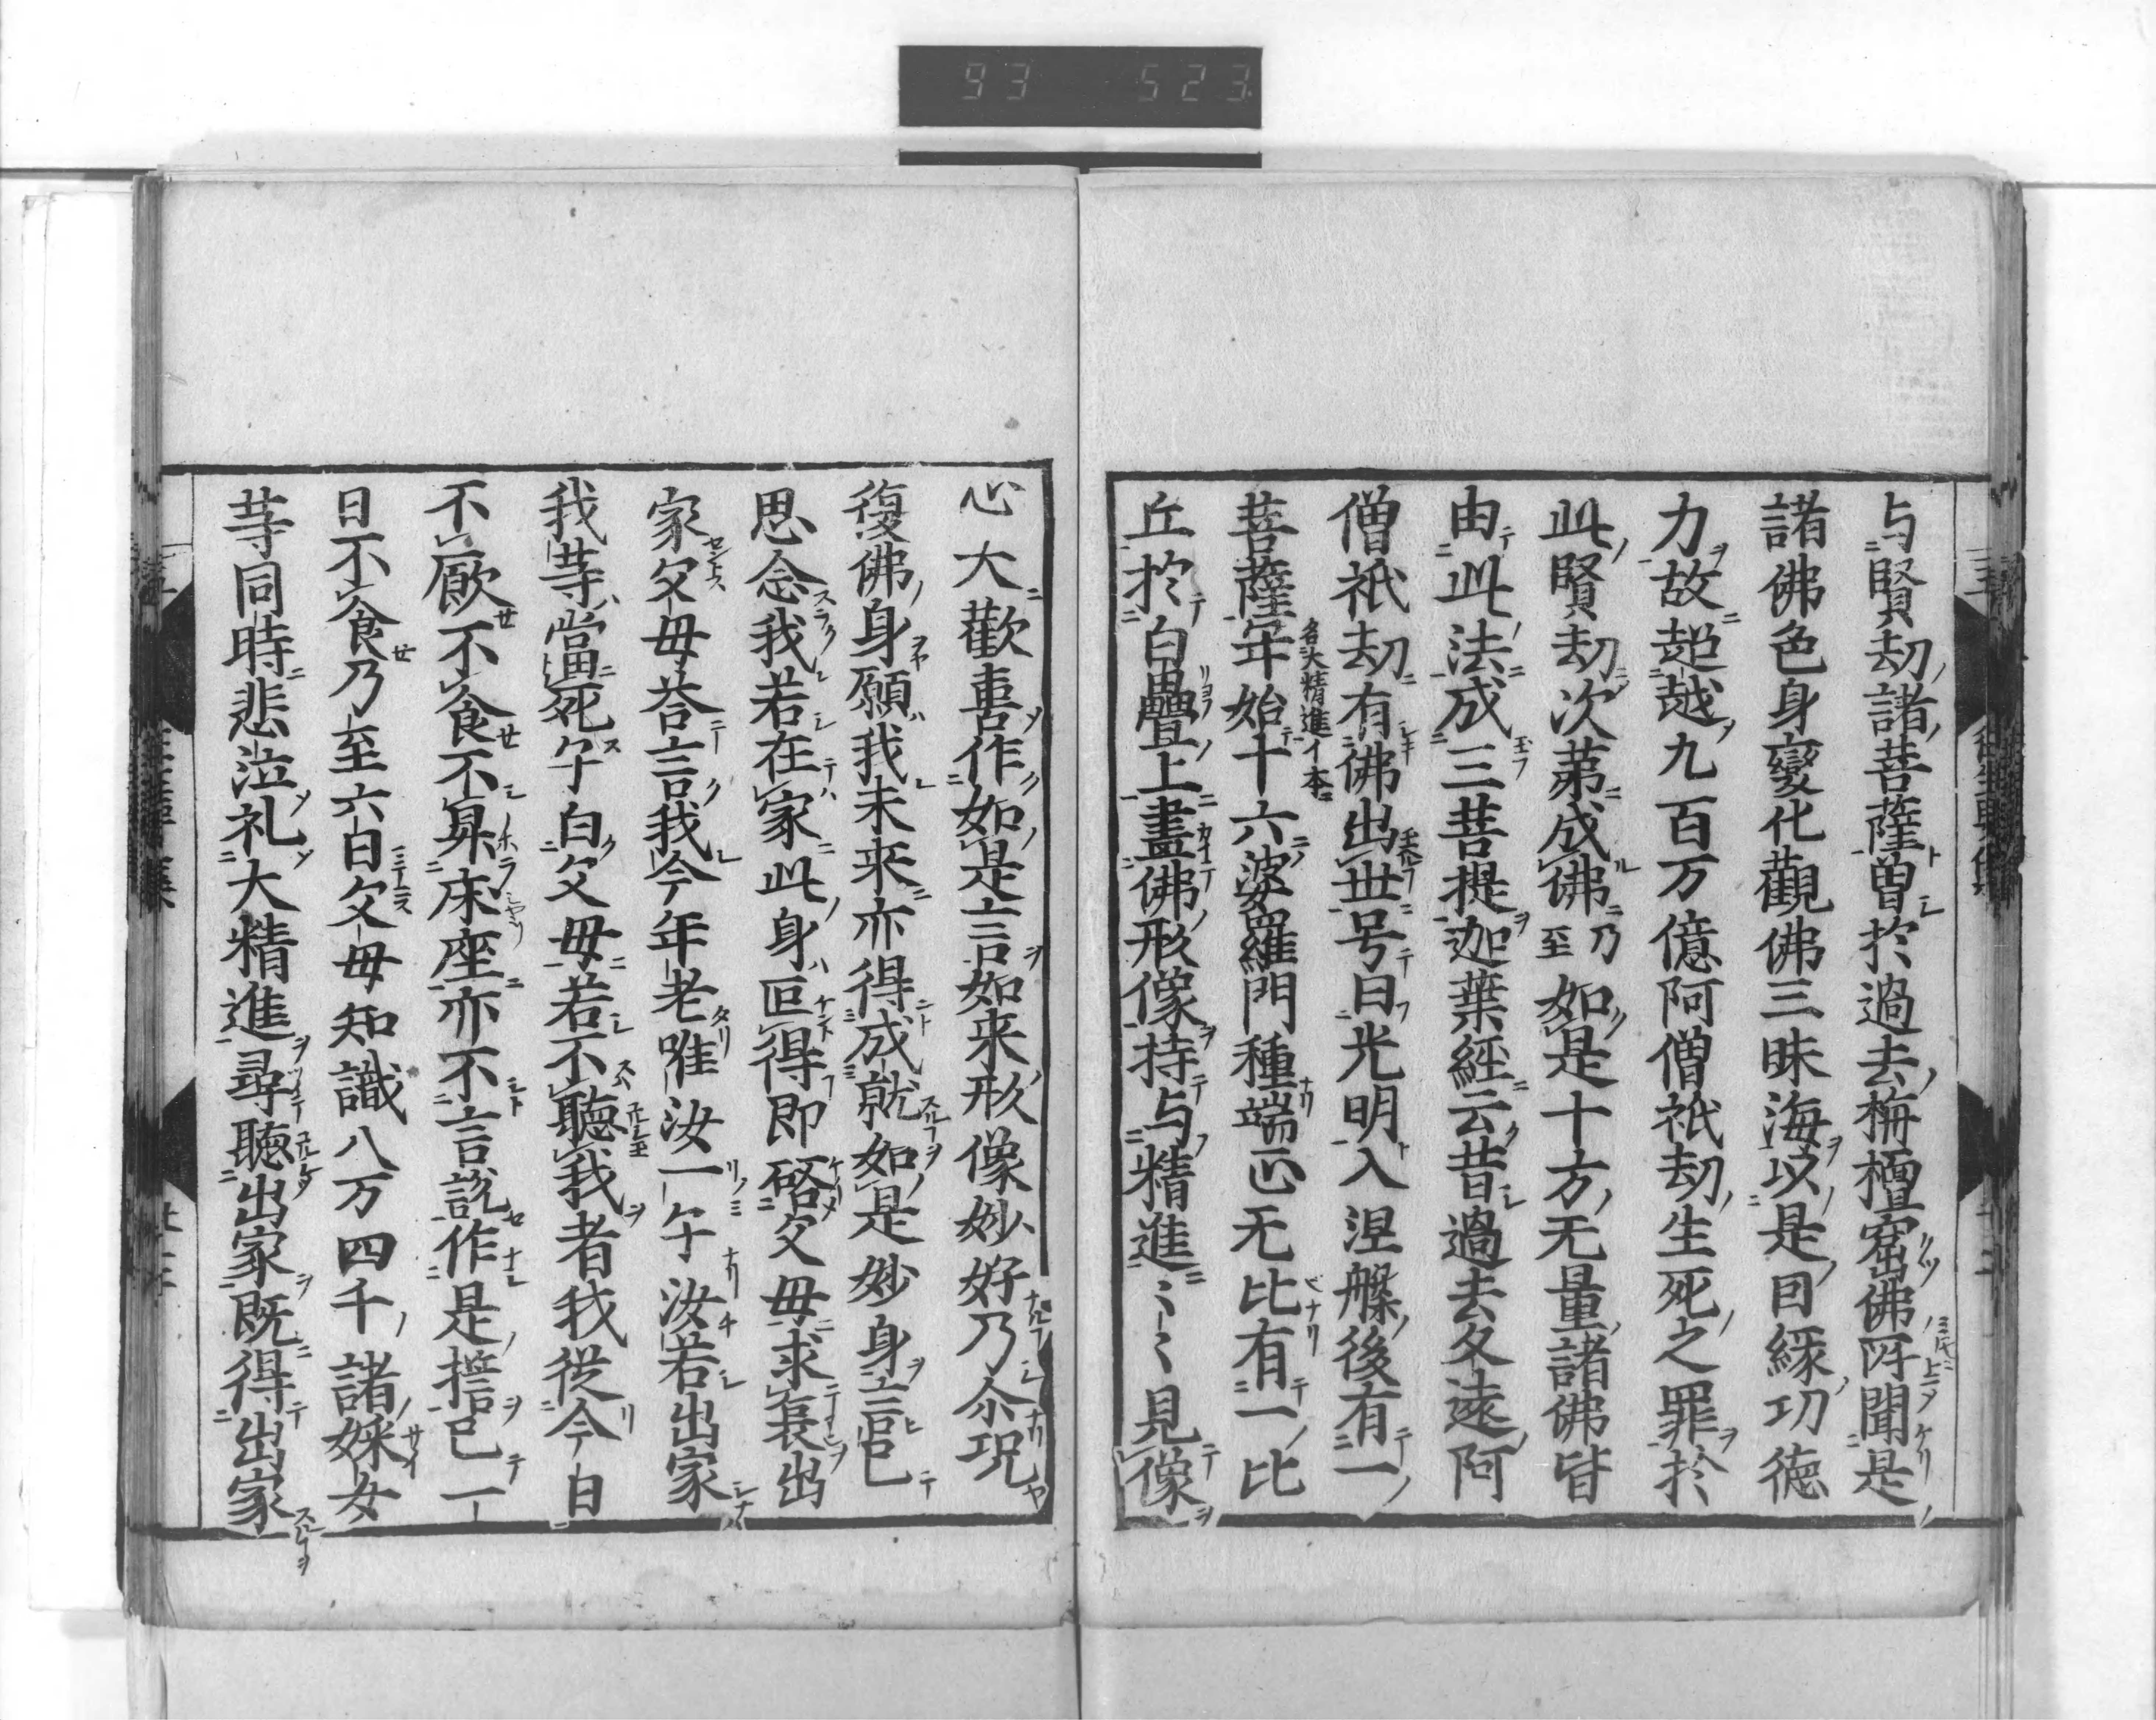 93 523
与賢劫諸菩薩曽扵過去栴檀窟佛所聞是
諸佛色身變化觀佛三昧海以是因縁功徳
力故超越九百万億阿僧祇劫生死之罪扵
此賢劫次第成佛乃至如是十方无量諸佛皆
由此法成三菩提迦葉經云昔過去久遠阿
僧祇劫有佛出世号曰光明入涅槃後有一
菩薩名大精進イ本年始十六婆羅門種端正无比有一比
丘扵白疊上畫佛形像持与精進〻〻見像
心大歡喜作如是言如来形像妙好乃尒况
復佛身願我未来亦得成就如是妙身言已
思念我若在家此身叵得即啓父母求哀出
家父母荅言我今年老唯汝一子汝若出家
我等當死子白父母若不聽我者我從今日
不飲不食不昇床座亦不言説作是誓已一
日不食乃至六日父母知識八万四千諸婇女
等同時悲泣礼大精進尋聽出家既得出家